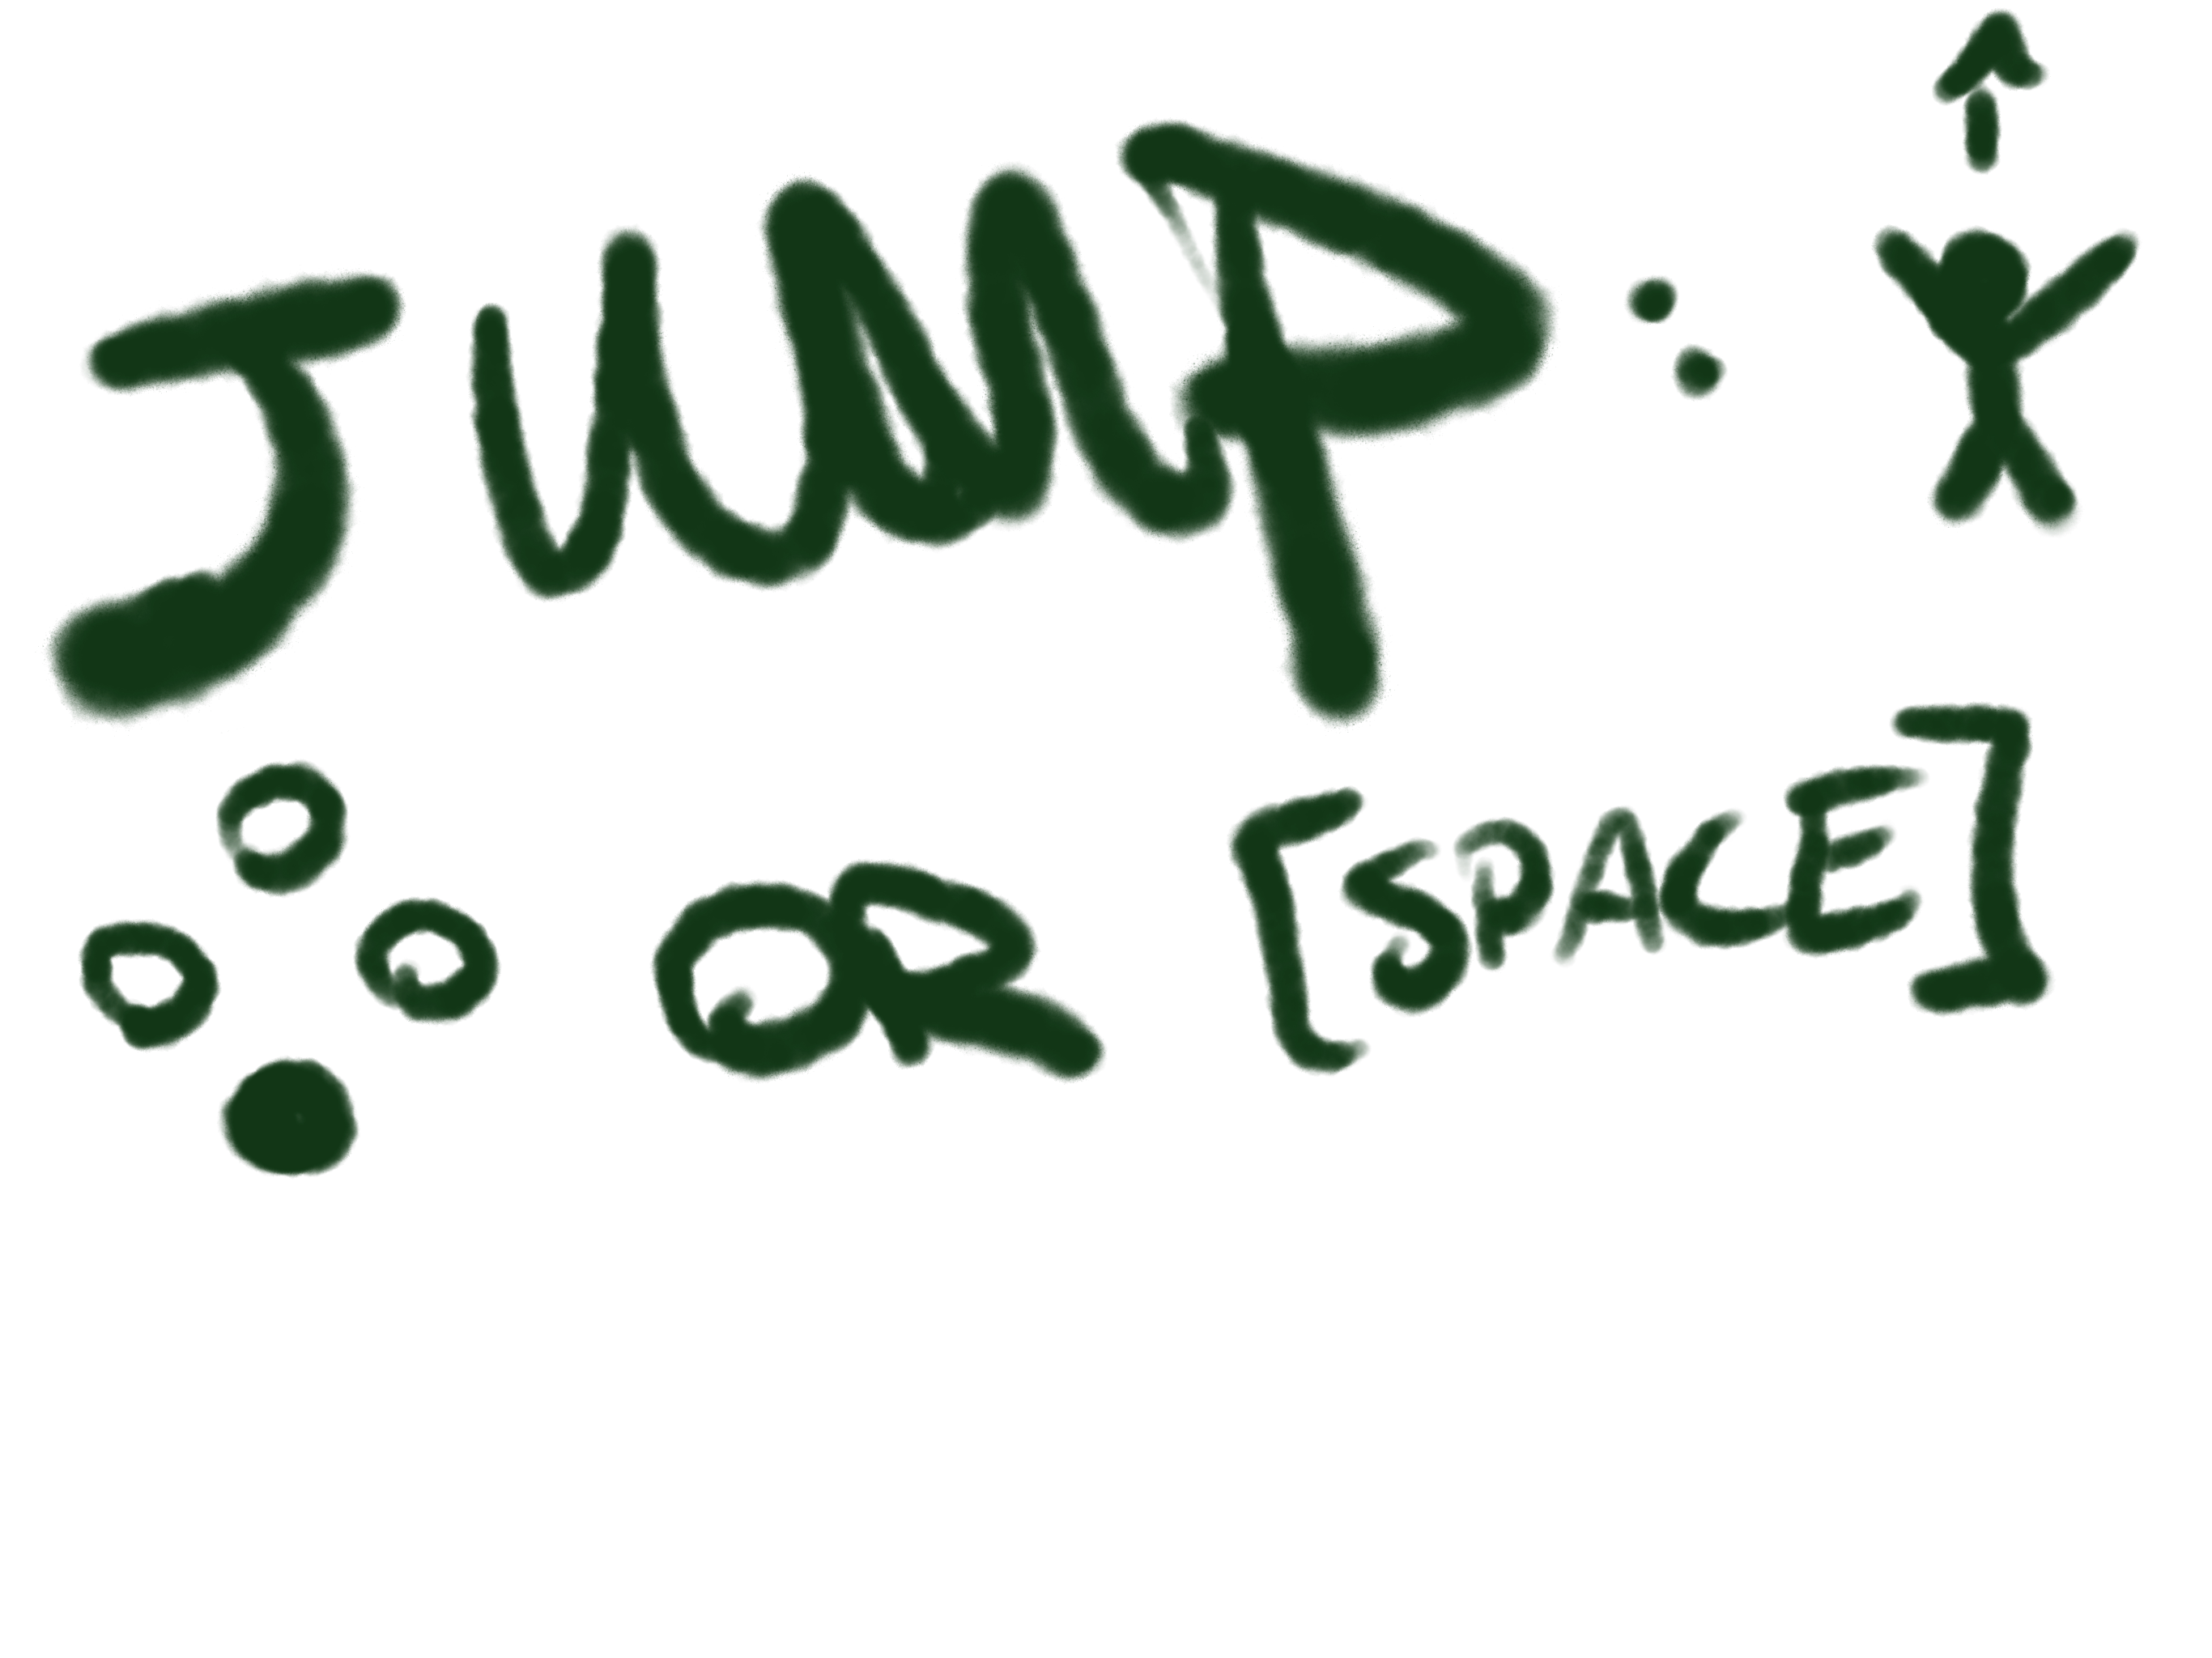 JUMP:
OR [SPACE]